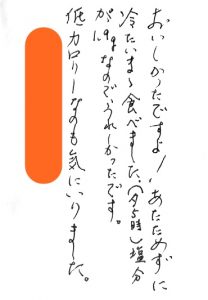 おいしかったですよ！あたためずに
冷たいまゝ食べました。（夕5時）塩分
が1.9gなのでうれしかったです。
低カロリーなのも気にいりました。